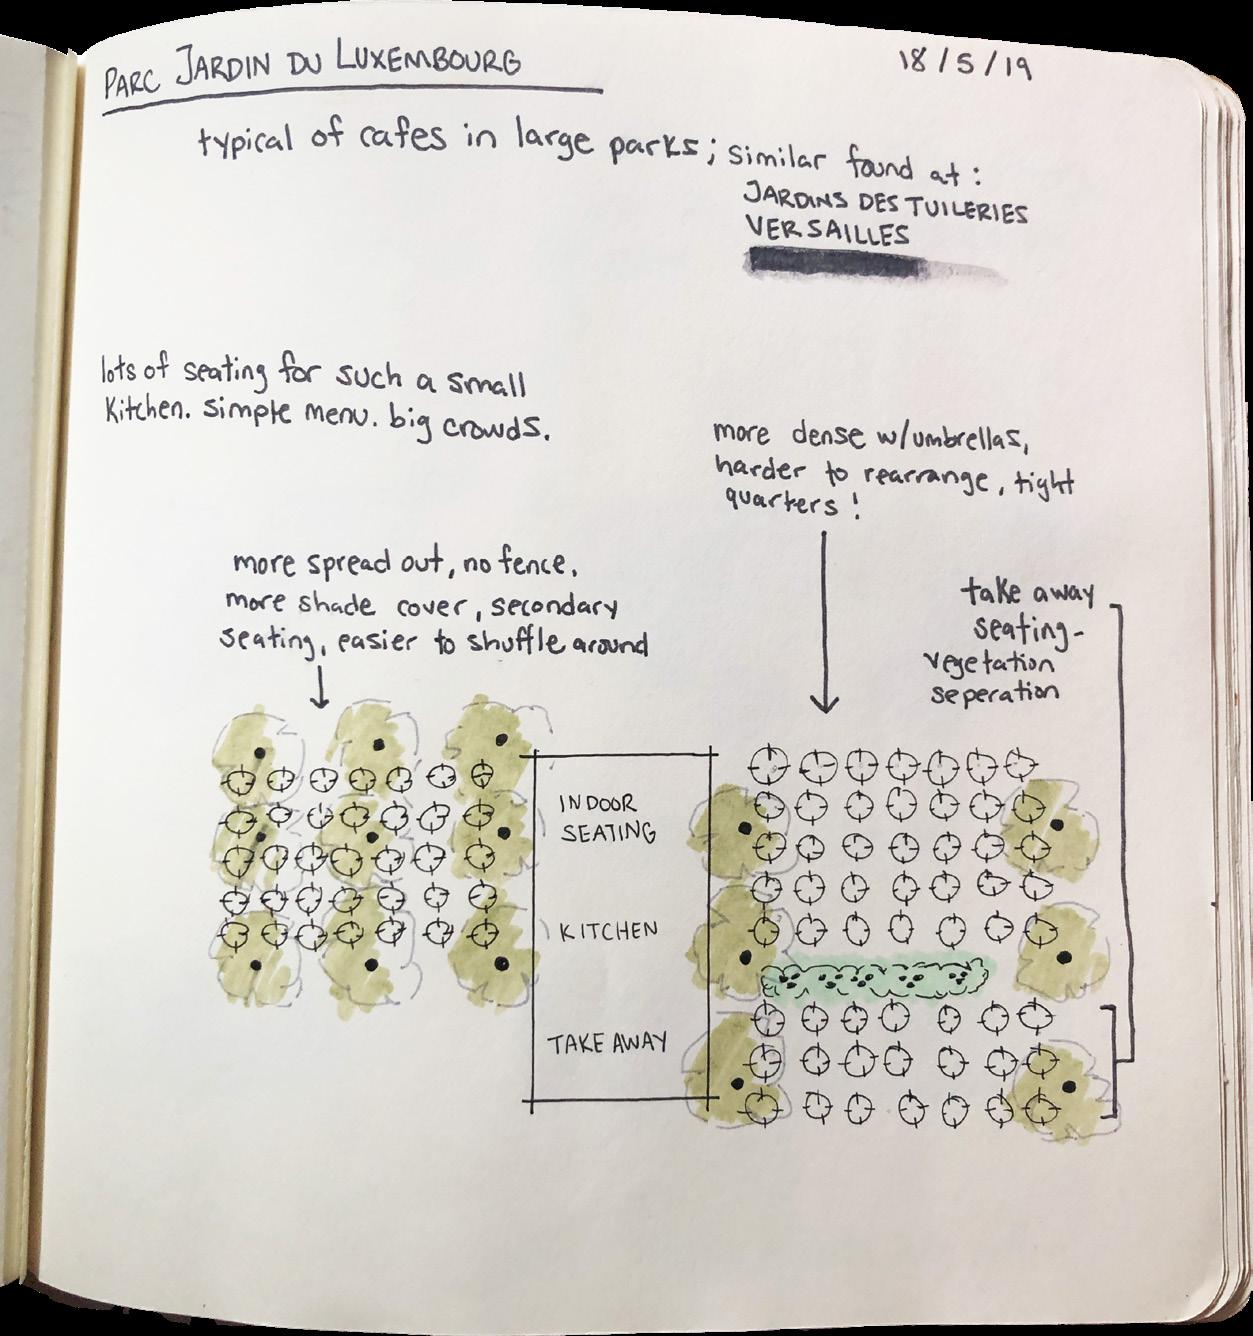 PARC JARDIN DU LUXEMBOURG
18/5/19
typical of cafes in large parks; similar found at:
JARDINS DES TUILERIES
VERSAILLES
lots of seating for such a small
kitchen. simple menu. big crowds.
more dense w/umbrellas,
harder to rearrange, tight
quarters!
more spread out, no fence,
more shade cover, secondary
seating, easier to shuffle around
take away
seating-
vegetation
seperation
INDOOR
SEATING
KITCHEN
TAKE AWAY